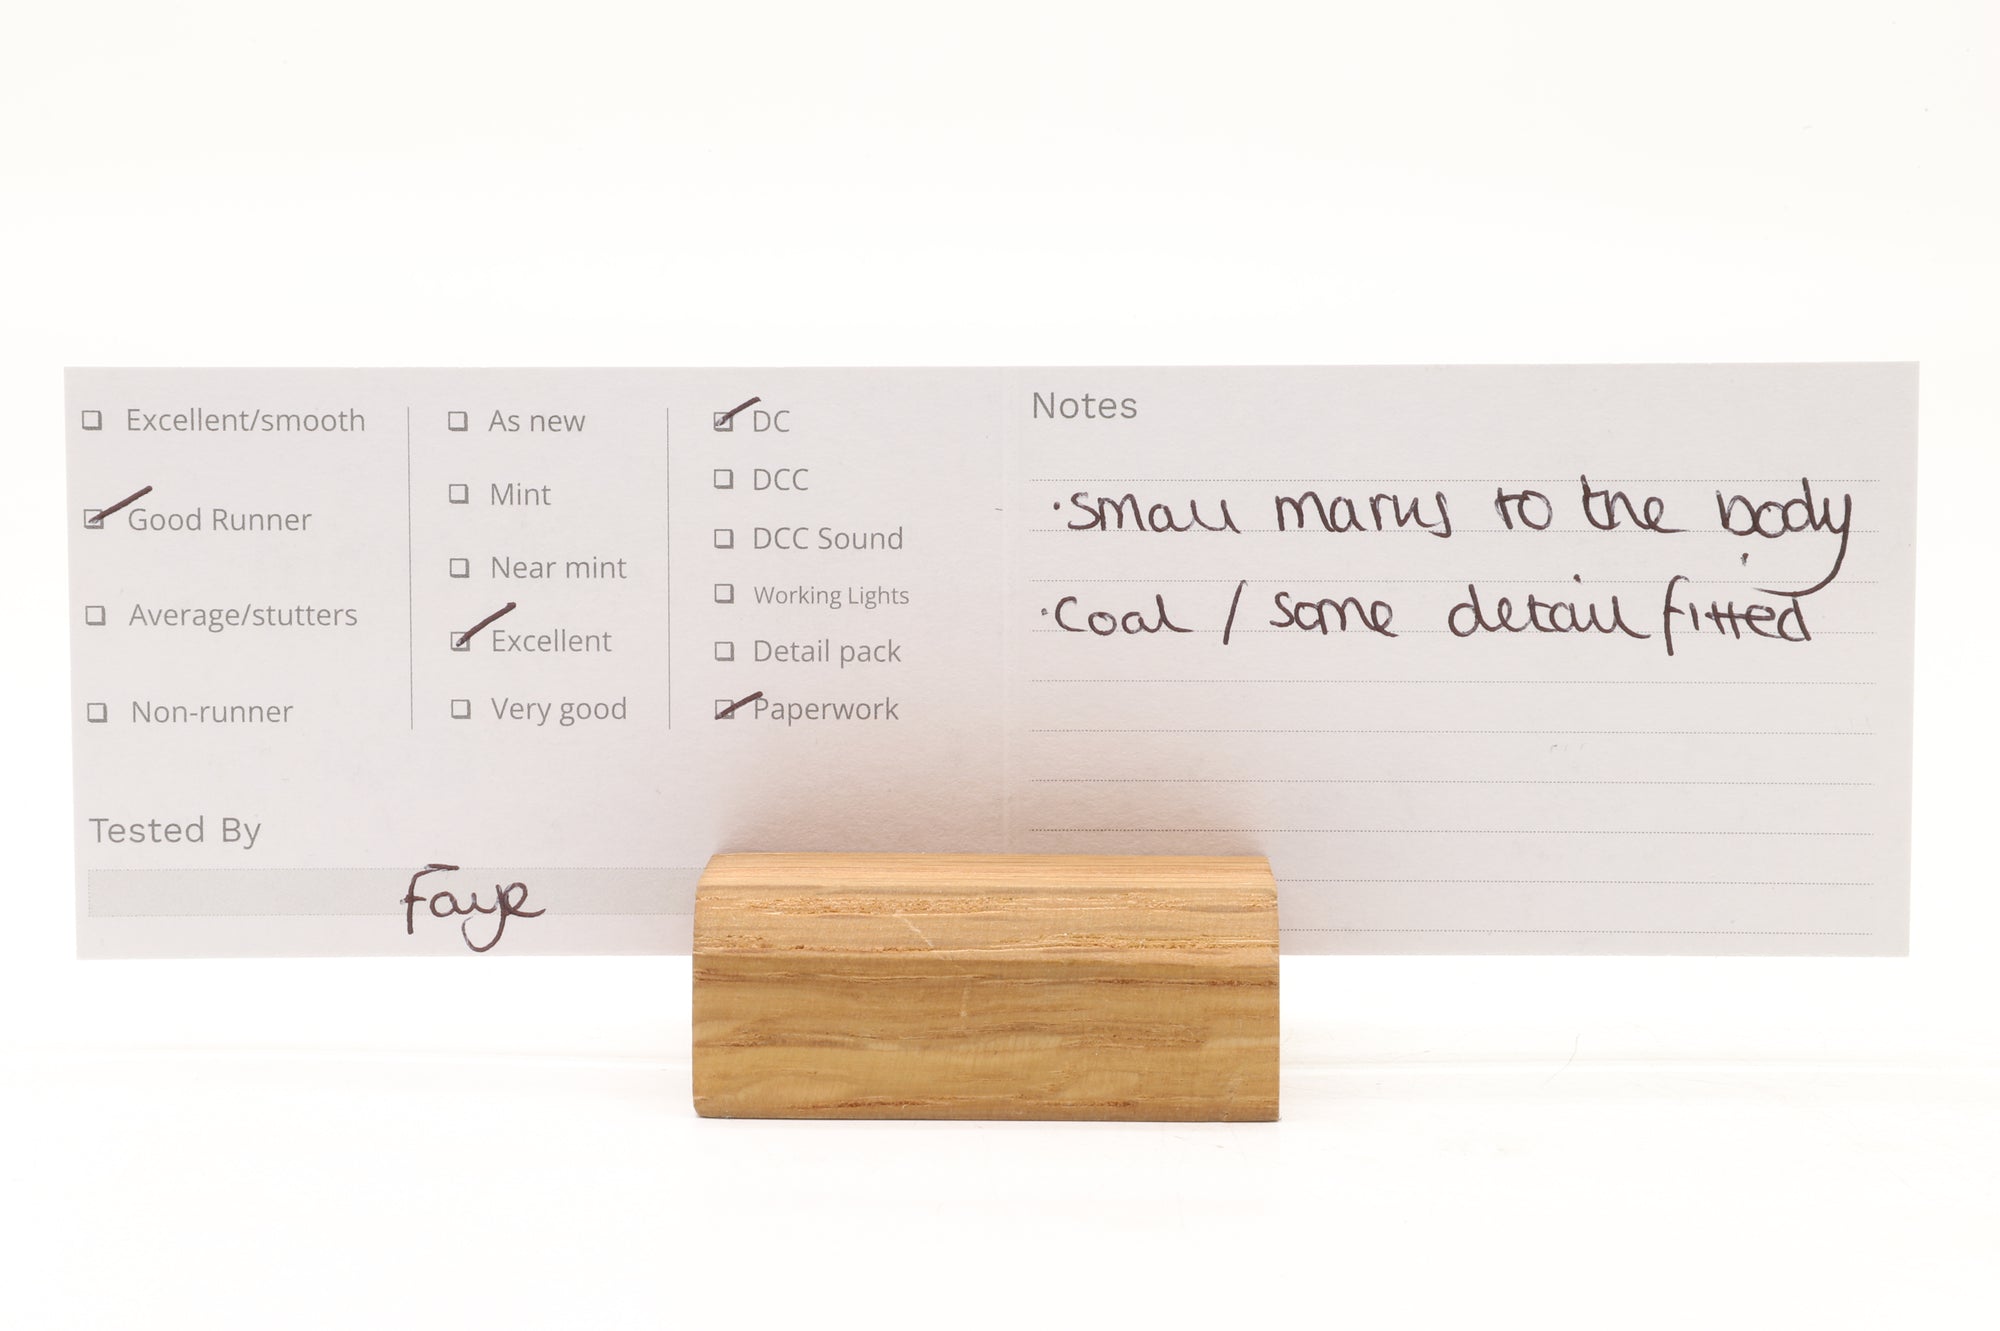 ☐ Excellent/smooth
☑ Good Runner
☐ Average/stutters
☐ Non-runner
☐ As new
☐ Mint
☐ Near mint
☑ Excellent
☐ Very good
☑ DC
☐ DCC
☐ DCC Sound
☐ Working Lights
☐ Detail pack
☑ Paperwork
Tested By
Faye
Notes
·small marks to the body
·Coal / some detail fitted